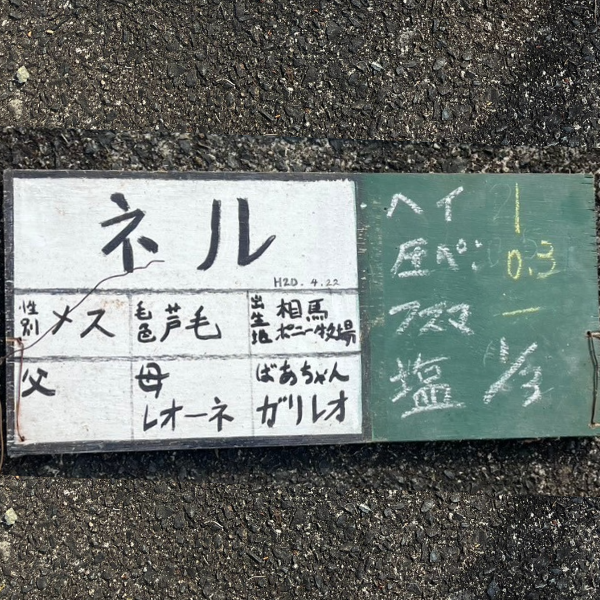 ネル
H20.4.22
性別 メス 毛色 芦毛 出生地 相馬ポニー牧場
父 母 レオーネ ばあちゃん ガリレオ
ヘイ 1
圧ペン 0.3
フスマ ー
塩 1/3